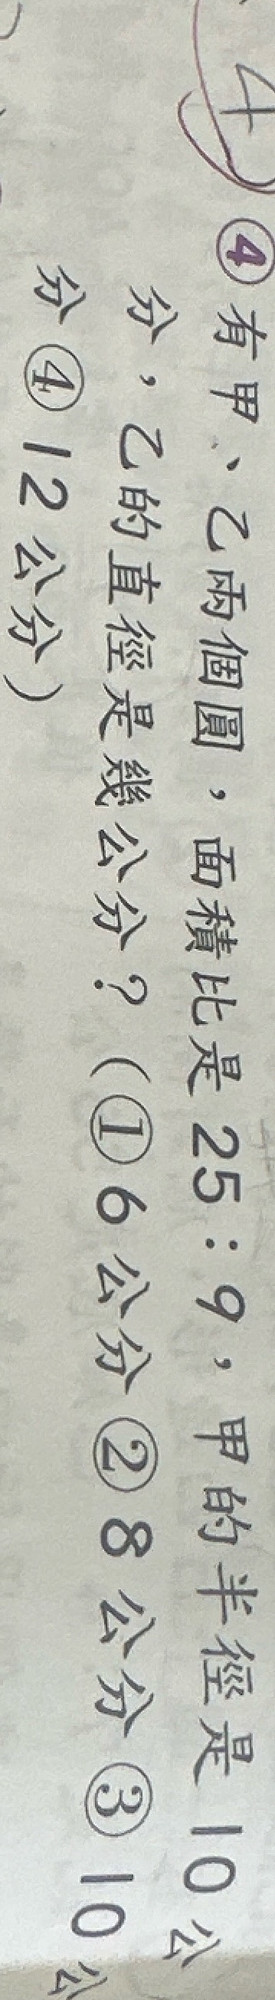 4 ④有甲、乙兩個圓，面積比是25：9，甲的半徑是10公
分，乙的直徑是幾公分？（①6公分②8公分③10公
分④12公分）